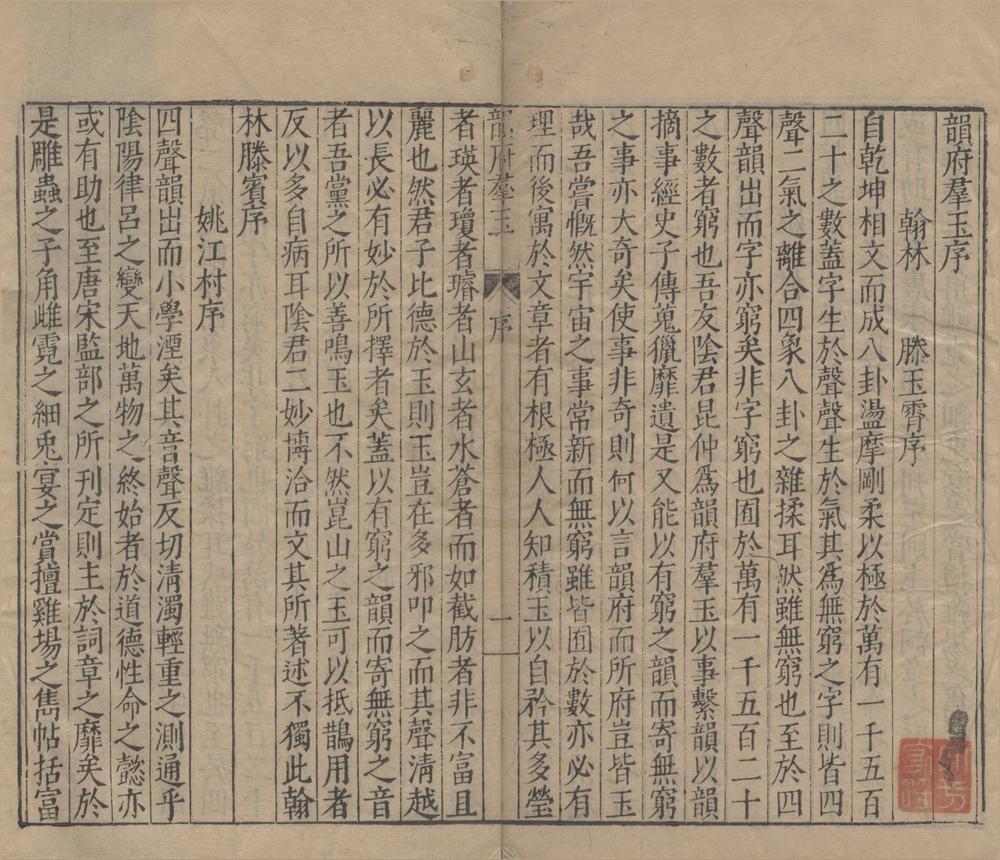 韻府羣玉序
翰林　滕玉霄序
自乾坤相文而成八卦盪摩剛柔以極於萬有一千五百
二十之數蓋字生於聲聲生於氣其爲無窮之字則皆四
聲二氣之離合四象八卦之雜揉耳然雖無窮也至於四
聲韻出而字亦窮矣非字窮也囿於萬有一千五百二十
之數者窮也吾友陰君昆仲爲韻府羣玉以事繫韻以韻
摘事經史子傳蒐獵靡遺是又能以有窮之韻而寄無窮
之事亦大奇矣使事非奇則何以言韻府而所府豈皆玉
哉吾嘗慨然宇宙之事常新而無窮雖皆囿於數亦必有
理而後寓於文章者有根極人人知積玉以自衿其多瑩
韻府羣玉　序　一
者瑛者瓊者璿者山玄者水蒼者而如截肪者非不富且
麗也然君子比德於玉則玉豈在多邪叩之而其聲清越
以長必有妙於所擇者矣蓋以有窮之韻而寄無窮之音
者吾黨之所以善鳴玉也不然崑山之玉可以抵鵲用者
反以多自病耳陰君二妙博洽而文其所著述不獨此翰
林滕賓序
姚江村序
四聲韻出而小學湮矣其音聲反切清濁輕重之測通乎
陰陽律呂之變天地萬物之終始者於道德性命之懿亦
或有助也至唐宋監部之所刊定則主於詞章之靡矣於
是雕蟲之子角雌霓之細兎宴之賞擅雞場之雋帖括富